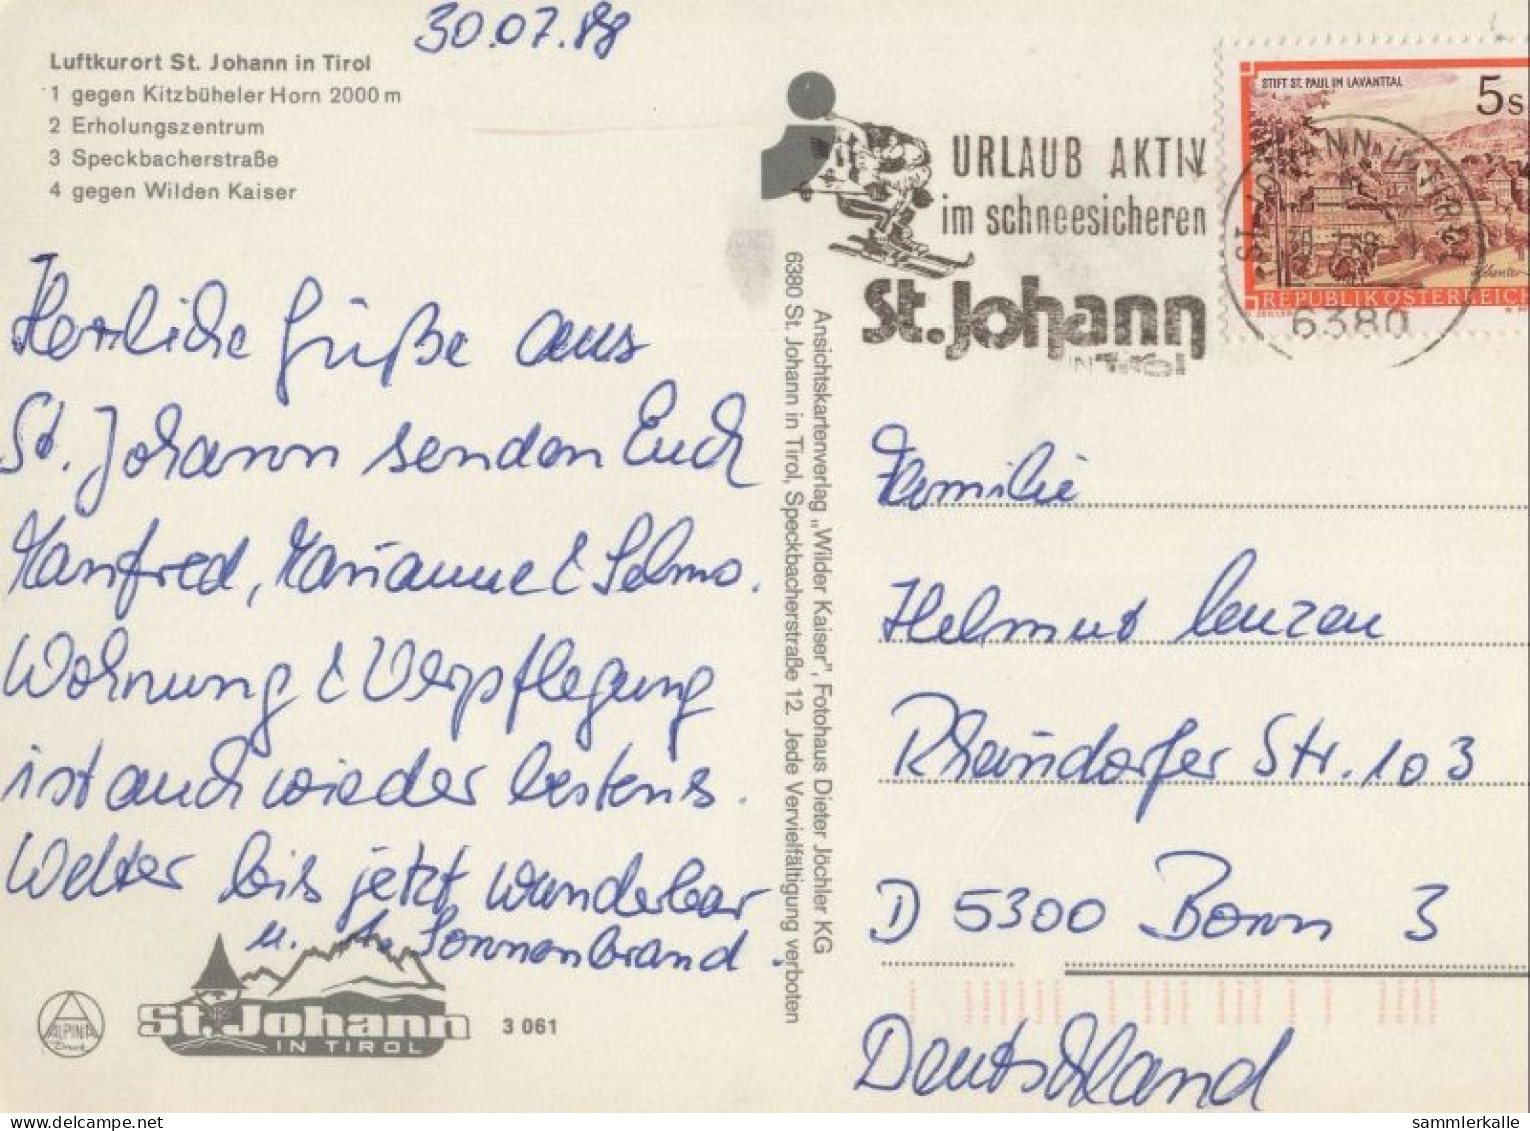 30.07.88
Luftkurort St. Johann in Tirol
1 gegen Kitzbüheler Horn 2000 m
2 Erholungszentrum
3 Speckbacherstraße
4 gegen Wilden Kaiser
Herzliche Grüße aus
St. Johann senden Euch
Manfred, Marianne &
Wohnung & Verpflegung
ist auch wieder bestens.
Wetter bis jetzt wunderbar
u. Sonnenbrand.
ALPINA
Druck
St. Johann
IN TIROL
3 061
Ansichtskartenverlag „Wilder Kaiser", Fotohaus Dieter Jöchler KG
6380 St. Johann in Tirol, Speckbacherstraße 12. Jede Vervielfältigung verboten
URLAUB AKTIV
im schneesicheren
St. Johann
IN TIROL
STIFT ST. PAUL IM LAVANTTAL
5 S
REPUBLIK ÖSTERREICH
ST. JOHANN IN TIROL
6380
Familie
Helmut
Rheindorfer Str. 103
D 5300 Bonn 3
Deutschland
sammlerkalle